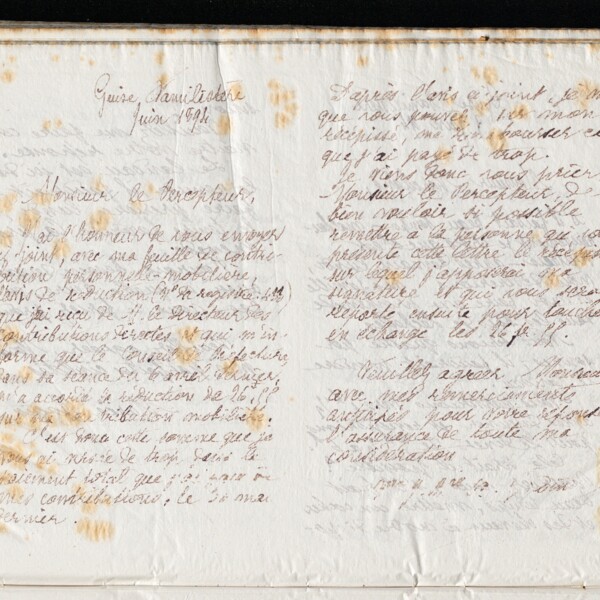 Guise, Familistère
Juin 1894
Monsieur le Percepteur,
J'ai l'honneur de vous envoyer
ci joint, avec ma feuille de contri-
bution personnelle-mobilière,
l'avis de réduction (Nº de registre
que j'ai reçu de M. le Directeur des
contributions directes et qui m'in-
forme que le Conseil de Préfecture
dans sa séance du 6 avril dernier,
m'a accordé une réduction de 26, 55
sur ma contribution mobilière.
C'est donc cette somme que je
vous ai versée de trop dans le
paiement total que j'ai fait de
mes contributions, le 30 mai
dernier.
D'après l'avis ci joint, je
que vous pouvez sur mon
récépissé, me rembourser ce
que j'ai payé de trop.
Je viens donc vous prier
Monsieur le Percepteur de
bien vouloir si possible
remettre à la personne qui
présente cette lettre le
sur lequel j'apposerai ma
signature et qui vous sera
reporté ensuite pour toucher
en échange les 26, 55.
Veuillez agréer, Monsieur
avec mes remerciements
anticipés pour votre
l'assurance de toute ma
considération